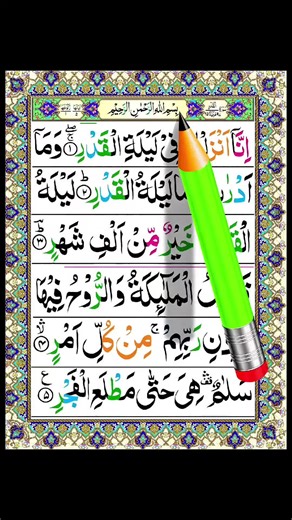 بِسْمِ اللهِ الرَّحْمٰنِ الرَّحِيْمِ
اِنَّاۤ فِيْ لَيْلَةِ الْقَدْرِ ۚۖ ۱ وَمَاۤ
مَا لَيْلَةُ الْقَدْرِ ۙ ۲ لَيْلَةُ
خَيْرٌ مِّنْ اَلْفِ شَهْرٍ ؕ ۳
الْمَلٰٓئِكَةُ وَالرُّوْحُ فِيْهَا
رَبِّهِمْ ۚ مِنْ كُلِّ اَمْرٍ ۙ ۴
سَلٰمٌ ۛ هِيَ حَتّٰى مَطْلَعِ الْفَجْرِ ۵ ع